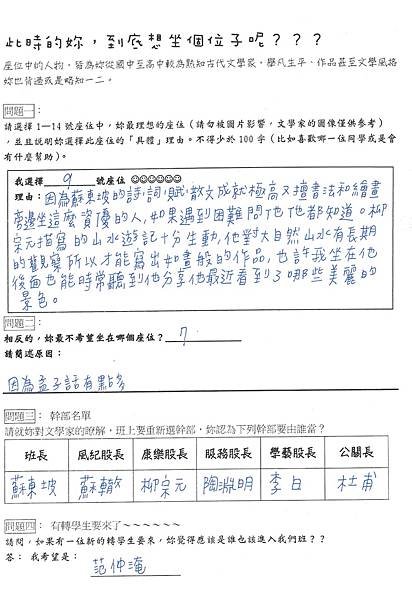 此時的妳，到底想坐個位子呢？？？
座位中的人物，皆為妳從國中至高中較為熟知古代文學家，舉凡生平、作品甚至文學風格
妳也背過或是略知一二。
問題一：
請選擇 1－14 號座位中，妳最理想的座位（請勿被圖片影響，文學家的圖像僅供參考）
，並且說明妳選擇此座位的「具體」理由。不得少於 100 字（比如喜歡哪一位同學或是會
有什麼幫助）。
我選擇 9 號座位 ☺☺☺☺☺☺
理由：因為蘇東坡的詩、詞、賦、散文成就極高又擅書法和繪畫
旁邊坐這麼資優的人，如果遇到困難問他他都知道。柳
宗元描寫的山水遊記十分生動，他對大自然山水有長期
的觀察所以才能寫出如畫般的作品，也許我坐在他
後面也能時常聽到他分享他最近看到了哪些美麗的
景色。
問題二：
相反的，妳最不希望坐在哪個座位？ 7
請簡述原因：
因為孟子話有點多
問題三： 幹部名單
請就妳對文學家的瞭解，班上要重新選幹部，妳認為下列幹部要由誰當？
班長 風紀股長 康樂股長 服務股長 學藝股長 公關長
蘇東坡 蘇轍 柳宗元 陶淵明 李白 杜甫
問題四： 有轉學生要來了～～～～～～
請問，如果有一位新的轉學生要來，妳覺得應該是誰也該進入我們班？？
答： 我希望是： 范仲淹